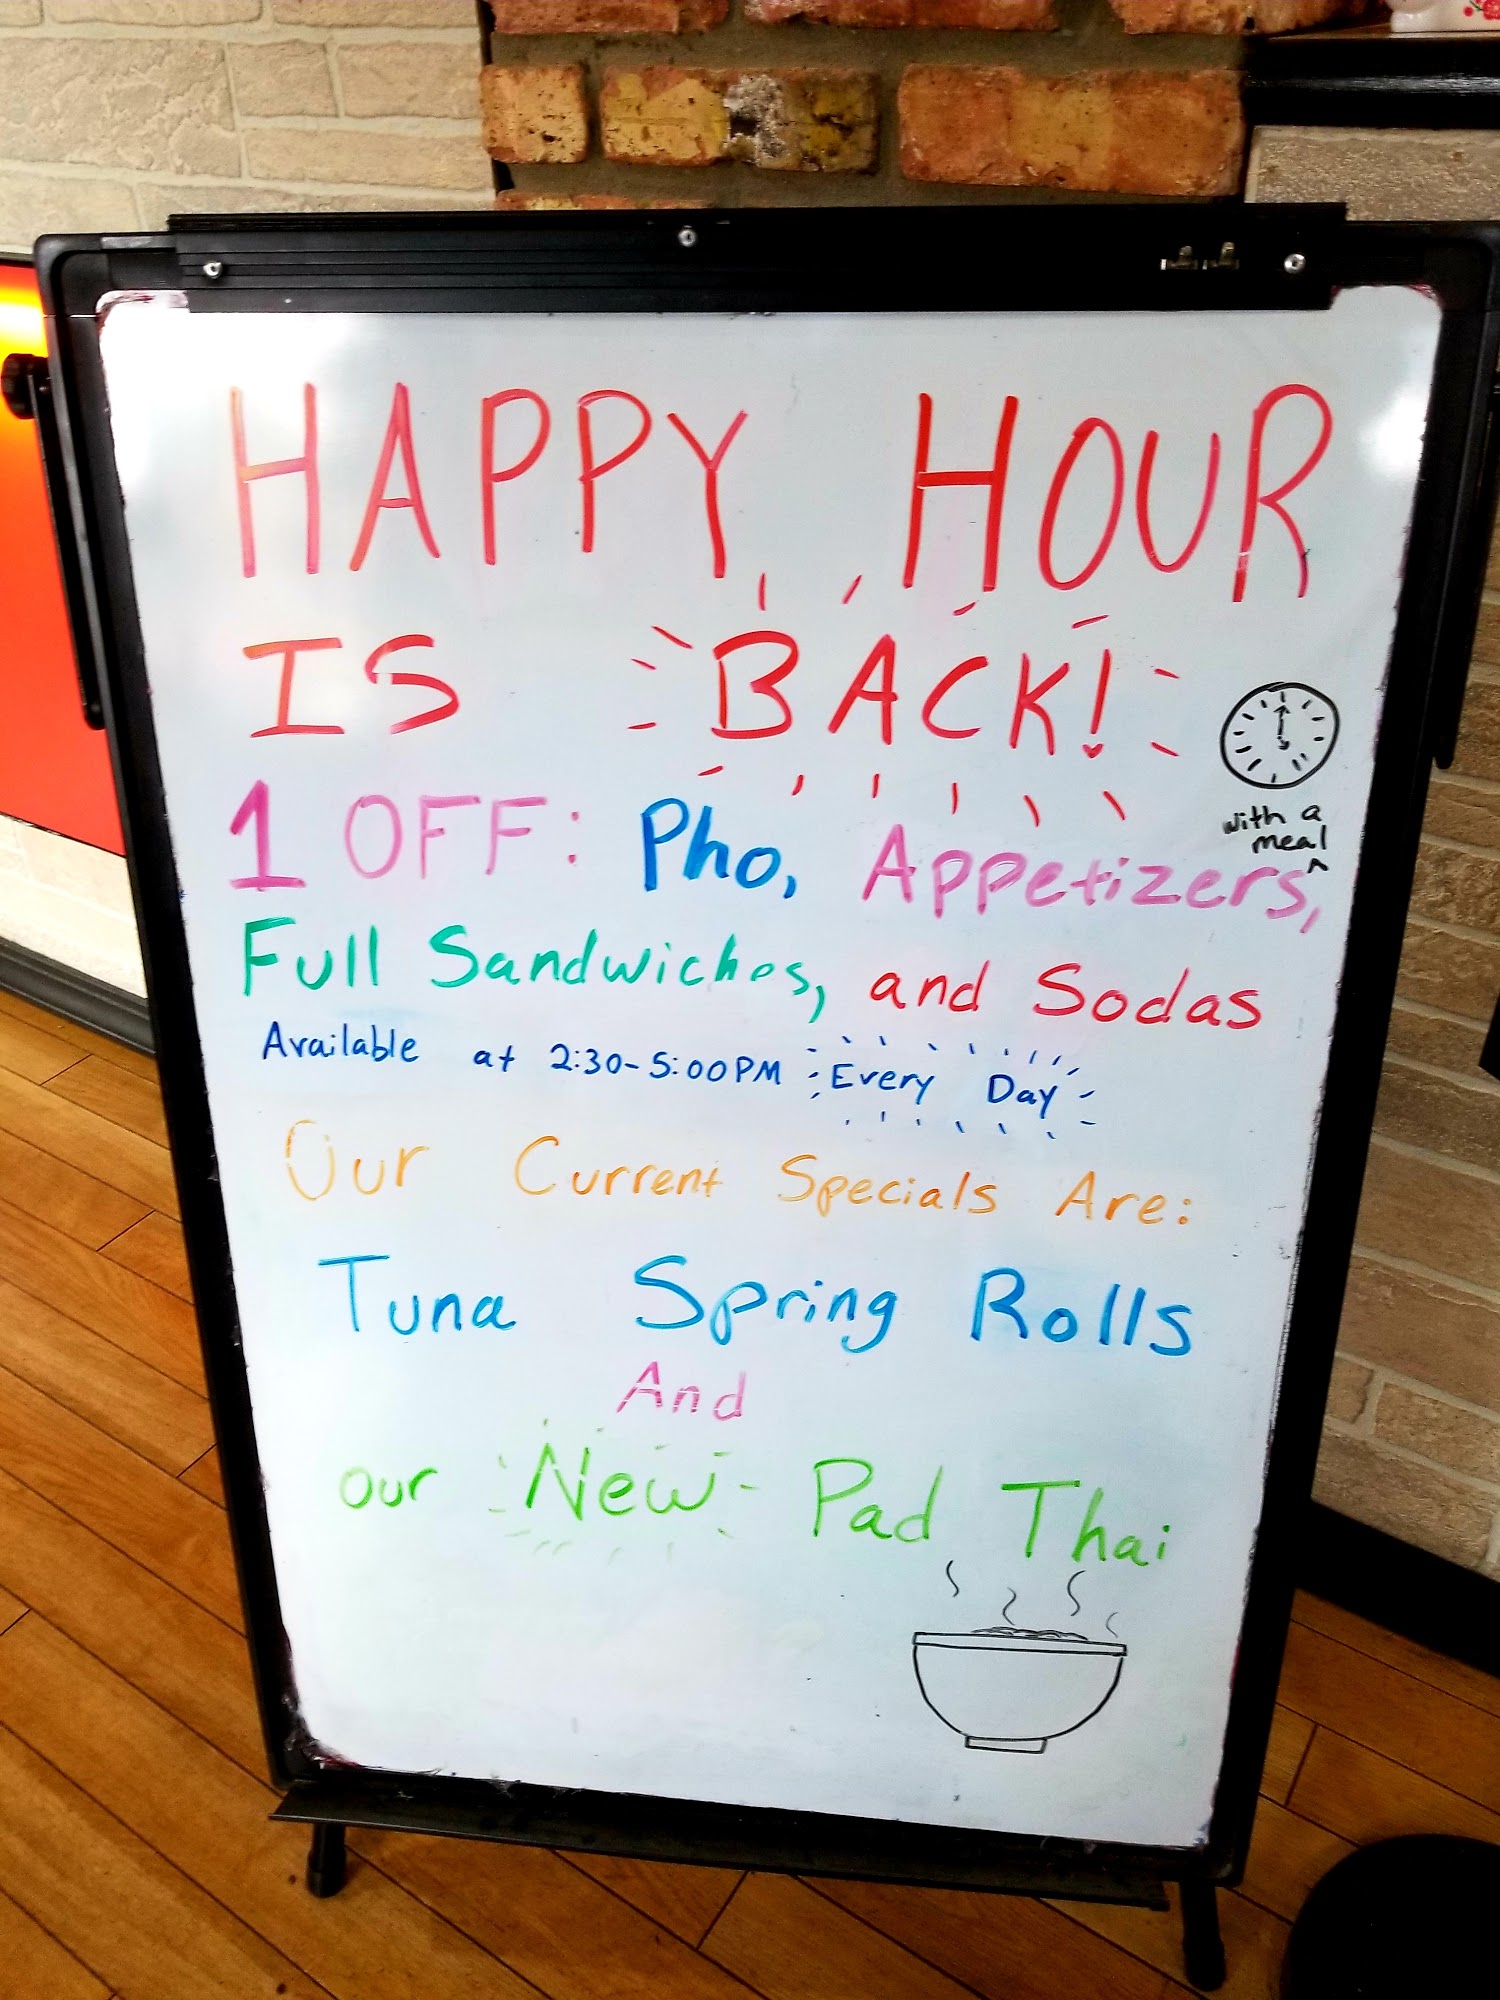 HAPPY HOUR
IS BACK!
with a
meal
1 OFF: Pho, Appetizers,
Full Sandwiches, and Sodas
Available at 2:30-5:00PM Every Day
Our Current Specials Are:
Tuna Spring Rolls
And
our New Pad Thai